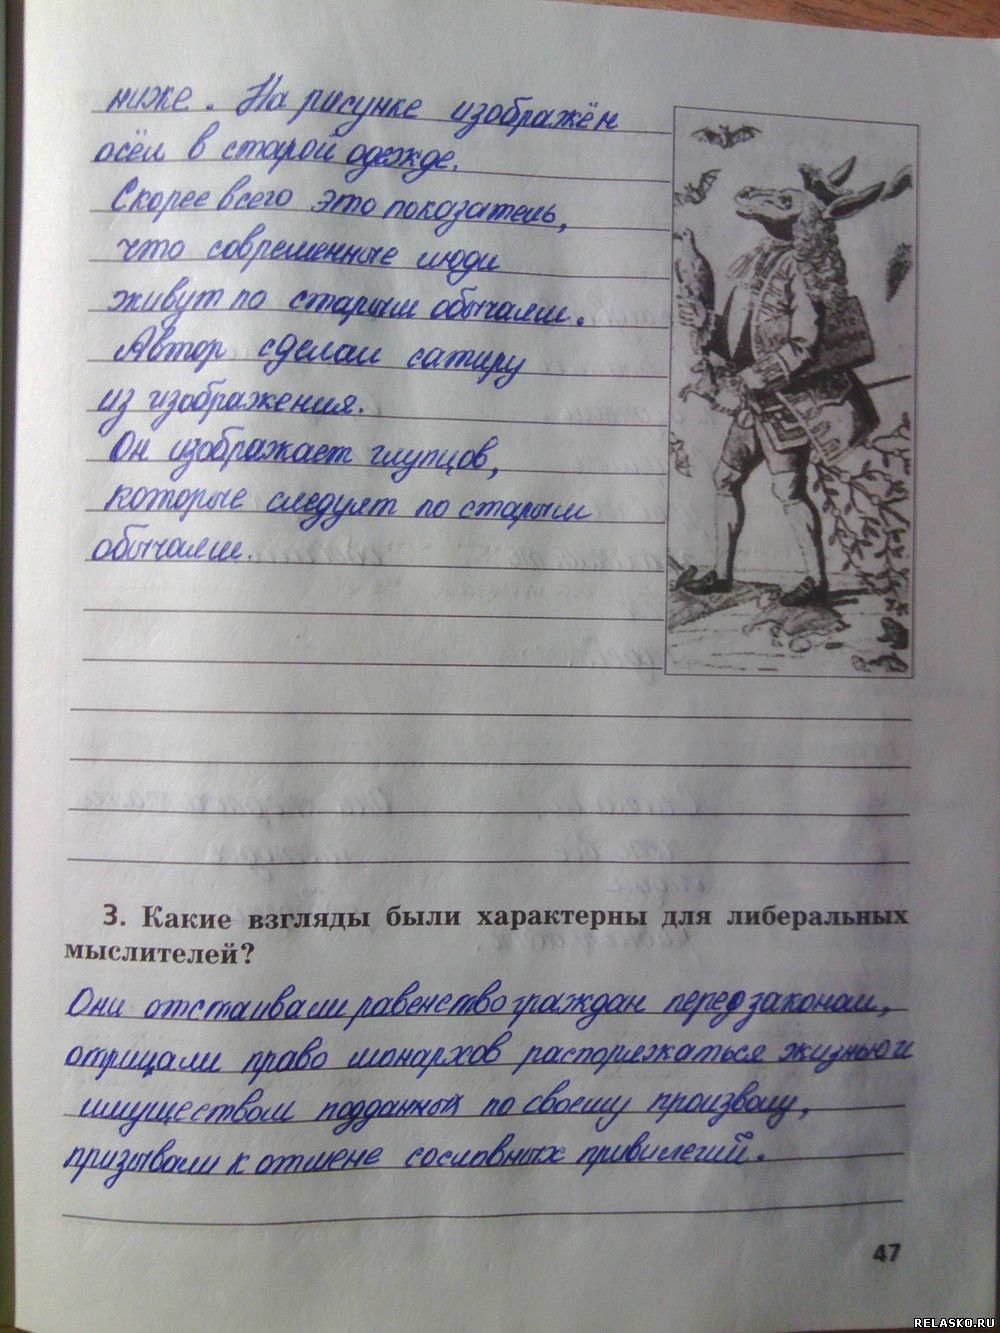 ниже. На рисунке изображён
осёл в старой одежде.
Скорее всего это показатель,
что современные люди
живут по старым обычаям.
Автор сделал сатиру
из изображения.
Он изображает глупцов,
которые следуют по старым
обычаям.
3. Какие взгляды были характерны для либеральных
мыслителей?
Они отстаивали равенство граждан перед законом,
отрицали право монархов распоряжаться жизнью и
имуществом подданных по своему произволу,
призывали к отмене сословных привилегий.
47
RELASKO.RU